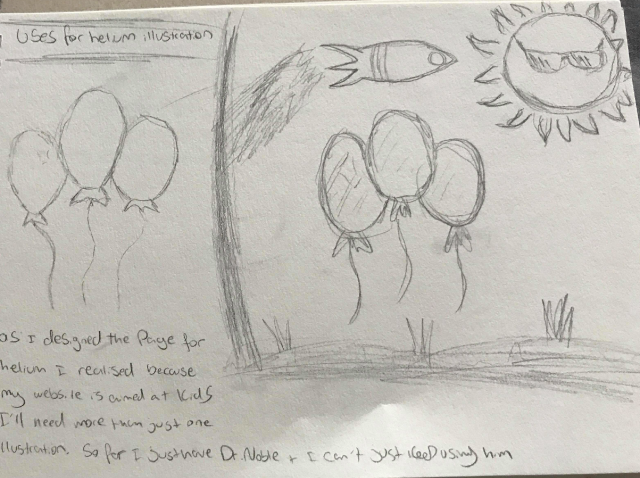 Uses for helium illustration
as I designed the Page for
helium I realised because
my website is aimed at Kids
I'll need more then just one
illustration. So far I just have Dr. Noble + I can't just keep using him